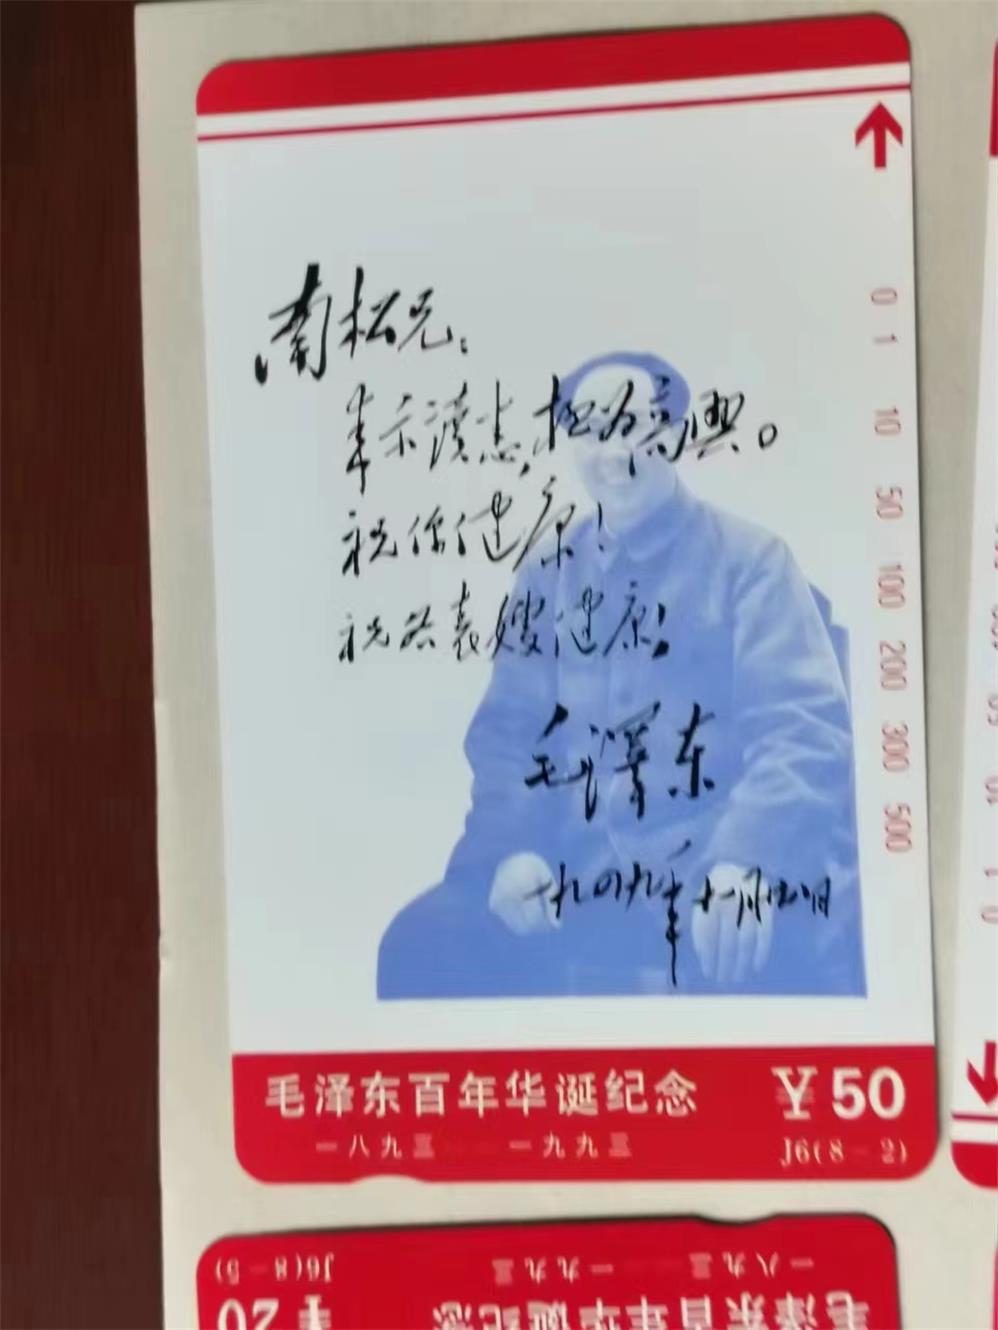 南松兄：
来示读悉，极为高興。
祝你健康！
祝 表嫂健康！
毛澤东
一九四九年十一月 日
0 1 10 50 100 200 300 500
毛泽东百年华诞纪念 ￥50
一八九三——一九九三 J6(8-2)
一八九三——一九九三 J6(8-5)
毛泽东百年华诞纪念 ￥20